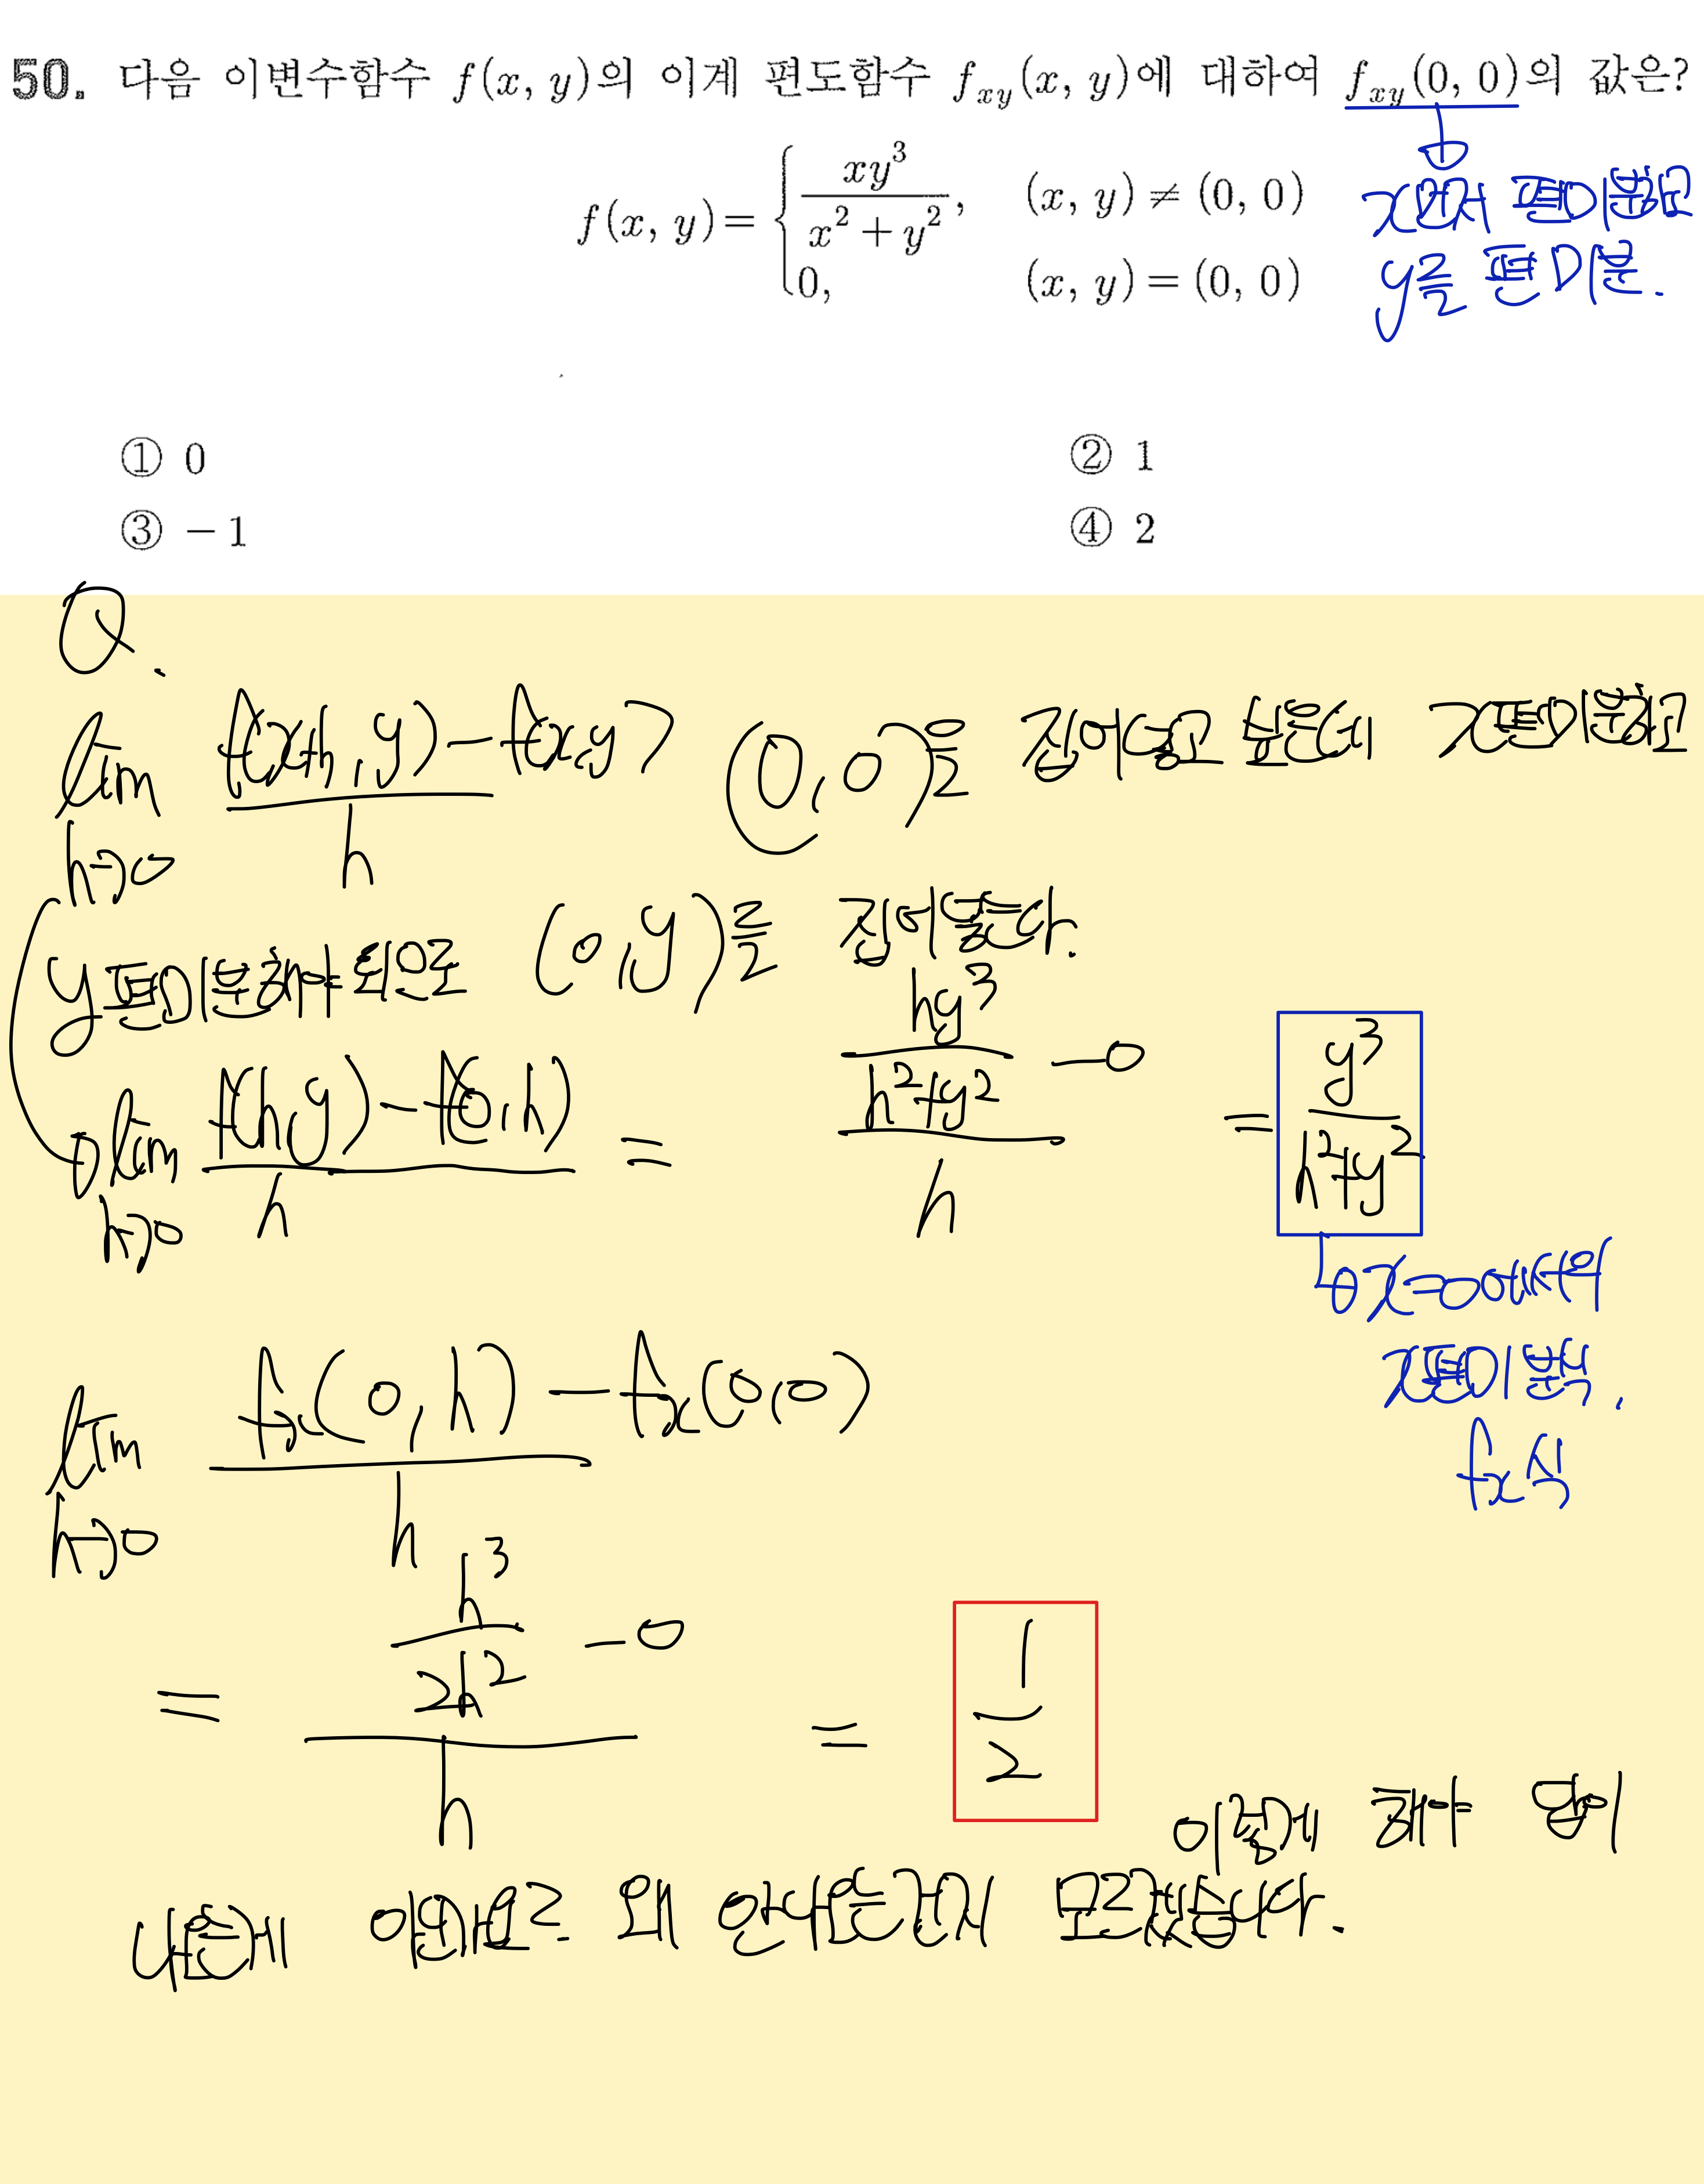 50. 다음 이변수함수 f(x, y)의 이계 편도함수 f_{xy}(x, y)에 대하여 f_{xy}(0, 0)의 값은?
f(x, y) = { \frac{xy^3}{x^2+y^2}, (x, y) ≠ (0, 0)
0, (x, y) = (0, 0)
x먼저 편미분하고
y를 편미분.
① 0 ② 1
③ -1 ④ 2
Q.
lim_{h→0} \frac{f(x+h, y) - f(x, y)}{h} (0, 0)을 집어넣고 푸는데 x편미분하고
y편미분해야 되므로 (0, y)를 집어넣는다.
lim_{h→0} \frac{f(h, y) - f(0, h)}{h} = \frac{\frac{hy^3}{h^2+y^2} - 0}{h} = \frac{y^3}{h^2+y^2}
x=0에서의
x편미분식.
f_x식
lim_{h→0} \frac{f_x(0, h) - f_x(0, 0)}{h}
= \frac{\frac{h^3}{2h^2} - 0}{h} = \frac{1}{2}
이렇게 해야 답이
나온게 아닌가요? 왜 안나오는건지 모르겠습니다.